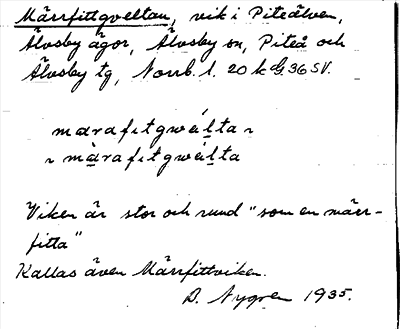 Märrfittqveltan, vik i Piteälven,
Älvsby ägor, Älvsby sn, Piteå och
Älvsby tg, Norrb. l. 20 k G. 36 SV.
marafitgwélta ~
~ màrafitgwélta
Viken är stor och rund "som en märr-
fitta"
Kallas även Märrfittviken.
D. Nygren 1935.